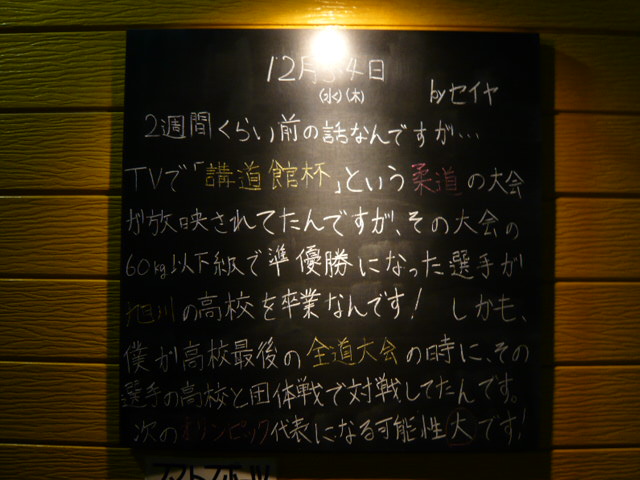 12月3.4日
(水)(木)
byセイヤ
2週間くらい前の話なんですが…
TVで「講道館杯」という柔道の大会
が放映されてたんですが、その大会の
60kg以下級で準優勝になった選手が
旭川の高校を卒業なんです! しかも、
僕が高校最後の全道大会の時に、その
選手の高校と団体戦で対戦してたんです。
次のオリンピック代表になる可能性大です!